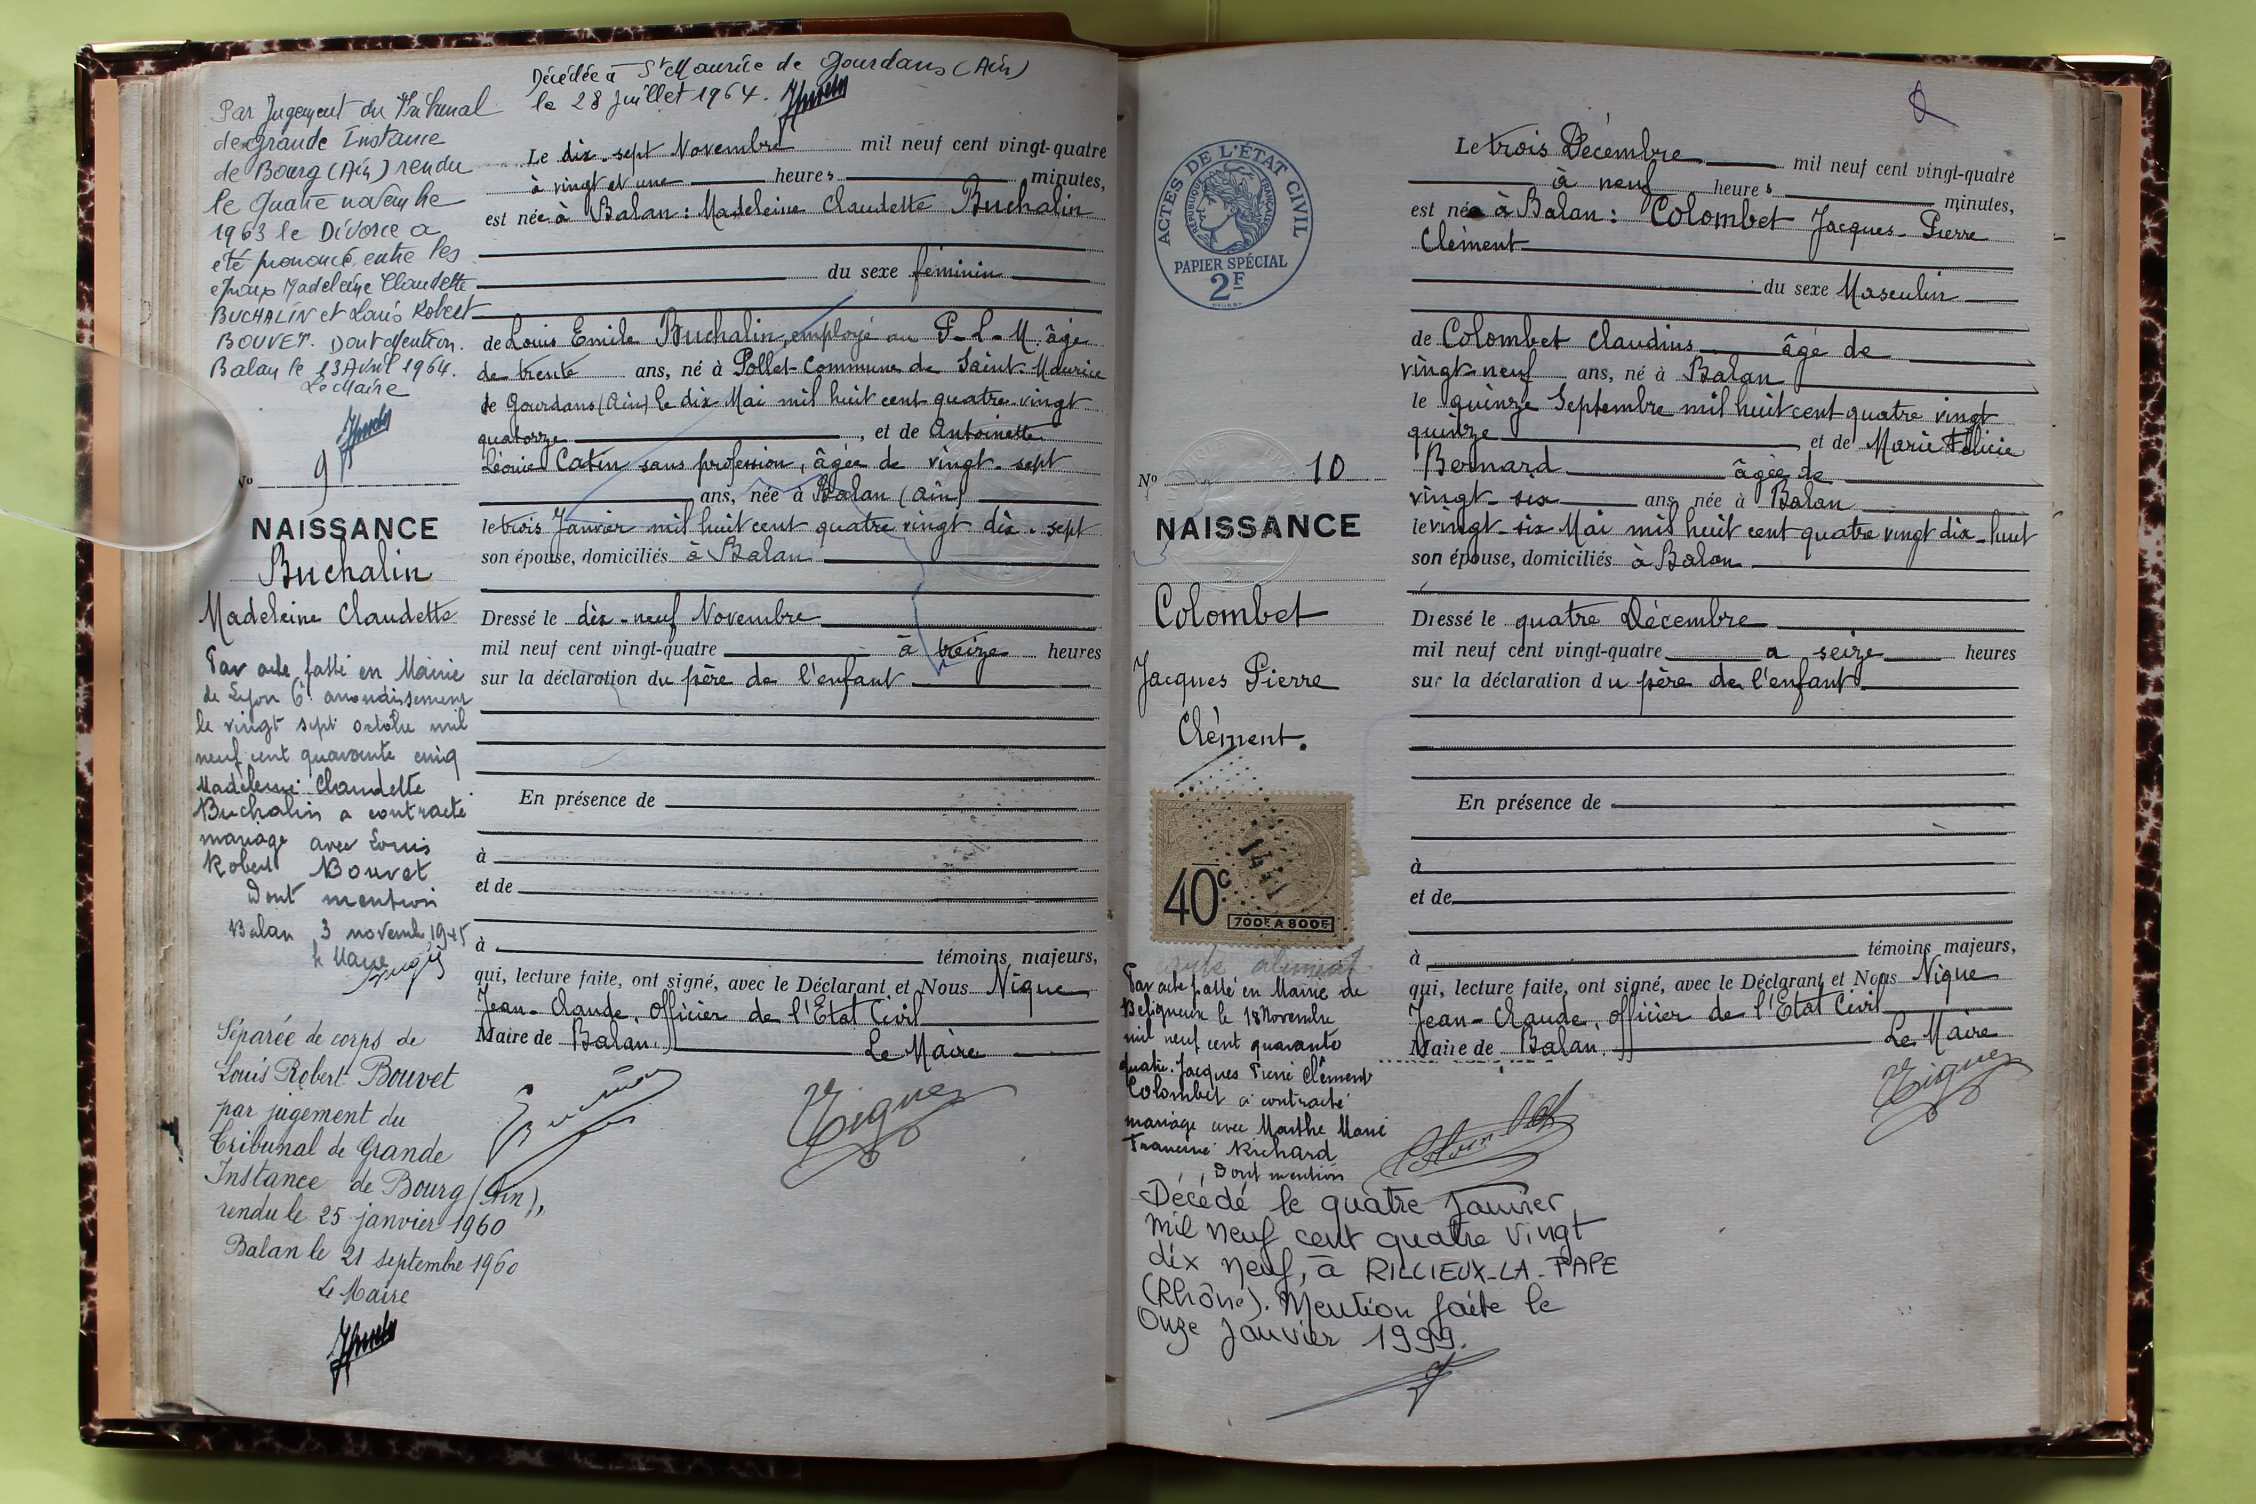 Décédée à St Maurice de Gourdans (Ain)
le 28 Juillet 1964.
Par Jugement du Tribunal
de grande Instance
de Bourg (Ain) rendu
le quatre novembre
1963 le Divorce a
été prononcé entre les
époux Madeleine Claudette
BUCHALIN et Louis Robert
BOUVET. Dont Mention.
Balan le 13 Avril 1964.
Le Maire
No 9
NAISSANCE
Buchalin
Madeleine Claudette
Par acte passé en Mairie
de Lyon 6e arrondissement
le vingt sept octobre mil
neuf cent quarante cinq
Madeleine Claudette
Buchalin a contracté
mariage avec Louis
Robert Bouvet
Dont mention
Balan 3 novembre 1945
le Maire
Séparée de corps de
Louis Robert Bouvet
par jugement du
Tribunal de Grande
Instance de Bourg (Ain),
rendu le 25 janvier 1960
Balan le 21 septembre 1960
Le Maire
Le dix-sept Novembre mil neuf cent vingt-quatre
à vingt et une heures minutes,
est née à Balan : Madeleine Claudette Buchalin
du sexe féminin
de Louis Emile Buchalin, employé au P-L-M. âgé
de trente ans, né à Pollet-Commune de Saint-Maurice
de Gourdans (Ain) le dix Mai mil huit cent quatre vingt
quatorze, et de Antoinette
Léonie Catin sans profession, âgée de vingt-sept
ans, née à Balan (Ain)
le trois Janvier mil huit cent quatre vingt dix-sept
son épouse, domiciliés à Balan
Dressé le dix-neuf Novembre
mil neuf cent vingt-quatre à treize heures
sur la déclaration du père de l'enfant
En présence de
à
et de
à témoins majeurs,
qui, lecture faite, ont signé, avec le Déclarant et Nous Nique
Jean-Claude, Officier de l'Etat Civil
Maire de Balan. Le Maire
Nique
ACTES DE L'ÉTAT CIVIL
RÉPUBLIQUE FRANÇAISE
PAPIER SPÉCIAL
2F
No 10
NAISSANCE
Colombet
Jacques Pierre
Clément.
1441
40c
700F A 800F
Par acte passé en Mairie de
Béligneux le 18 Novembre
mil neuf cent quarante
quatre. Jacques Pierre Clément
Colombet a contracté
mariage avec Marthe Marie
Francine Richard
Dont mention
Décédé le quatre Janvier
mil neuf cent quatre vingt
dix neuf, à RILLIEUX-LA-PAPE
(Rhône). Mention faite le
Onze Janvier 1999.
Le trois Décembre mil neuf cent vingt-quatre
à neuf heures minutes,
est né à Balan : Colombet Jacques-Pierre
Clément
du sexe Masculin
de Colombet Claudius âgé de
vingt-neuf ans, né à Balan
le quinze Septembre mil huit cent quatre vingt
quinze et de Marie Félicie
Bernard âgée de
vingt-six ans, née à Balan
le vingt-six Mai mil huit cent quatre vingt dix-huit
son épouse, domiciliés à Balan
Dressé le quatre Décembre
mil neuf cent vingt-quatre à seize heures
sur la déclaration du père de l'enfant
En présence de
à
et de
à témoins majeurs,
qui, lecture faite, ont signé, avec le Déclarant et Nous Nique
Jean-Claude, Officier de l'Etat Civil
Maire de Balan. Le Maire
Nique